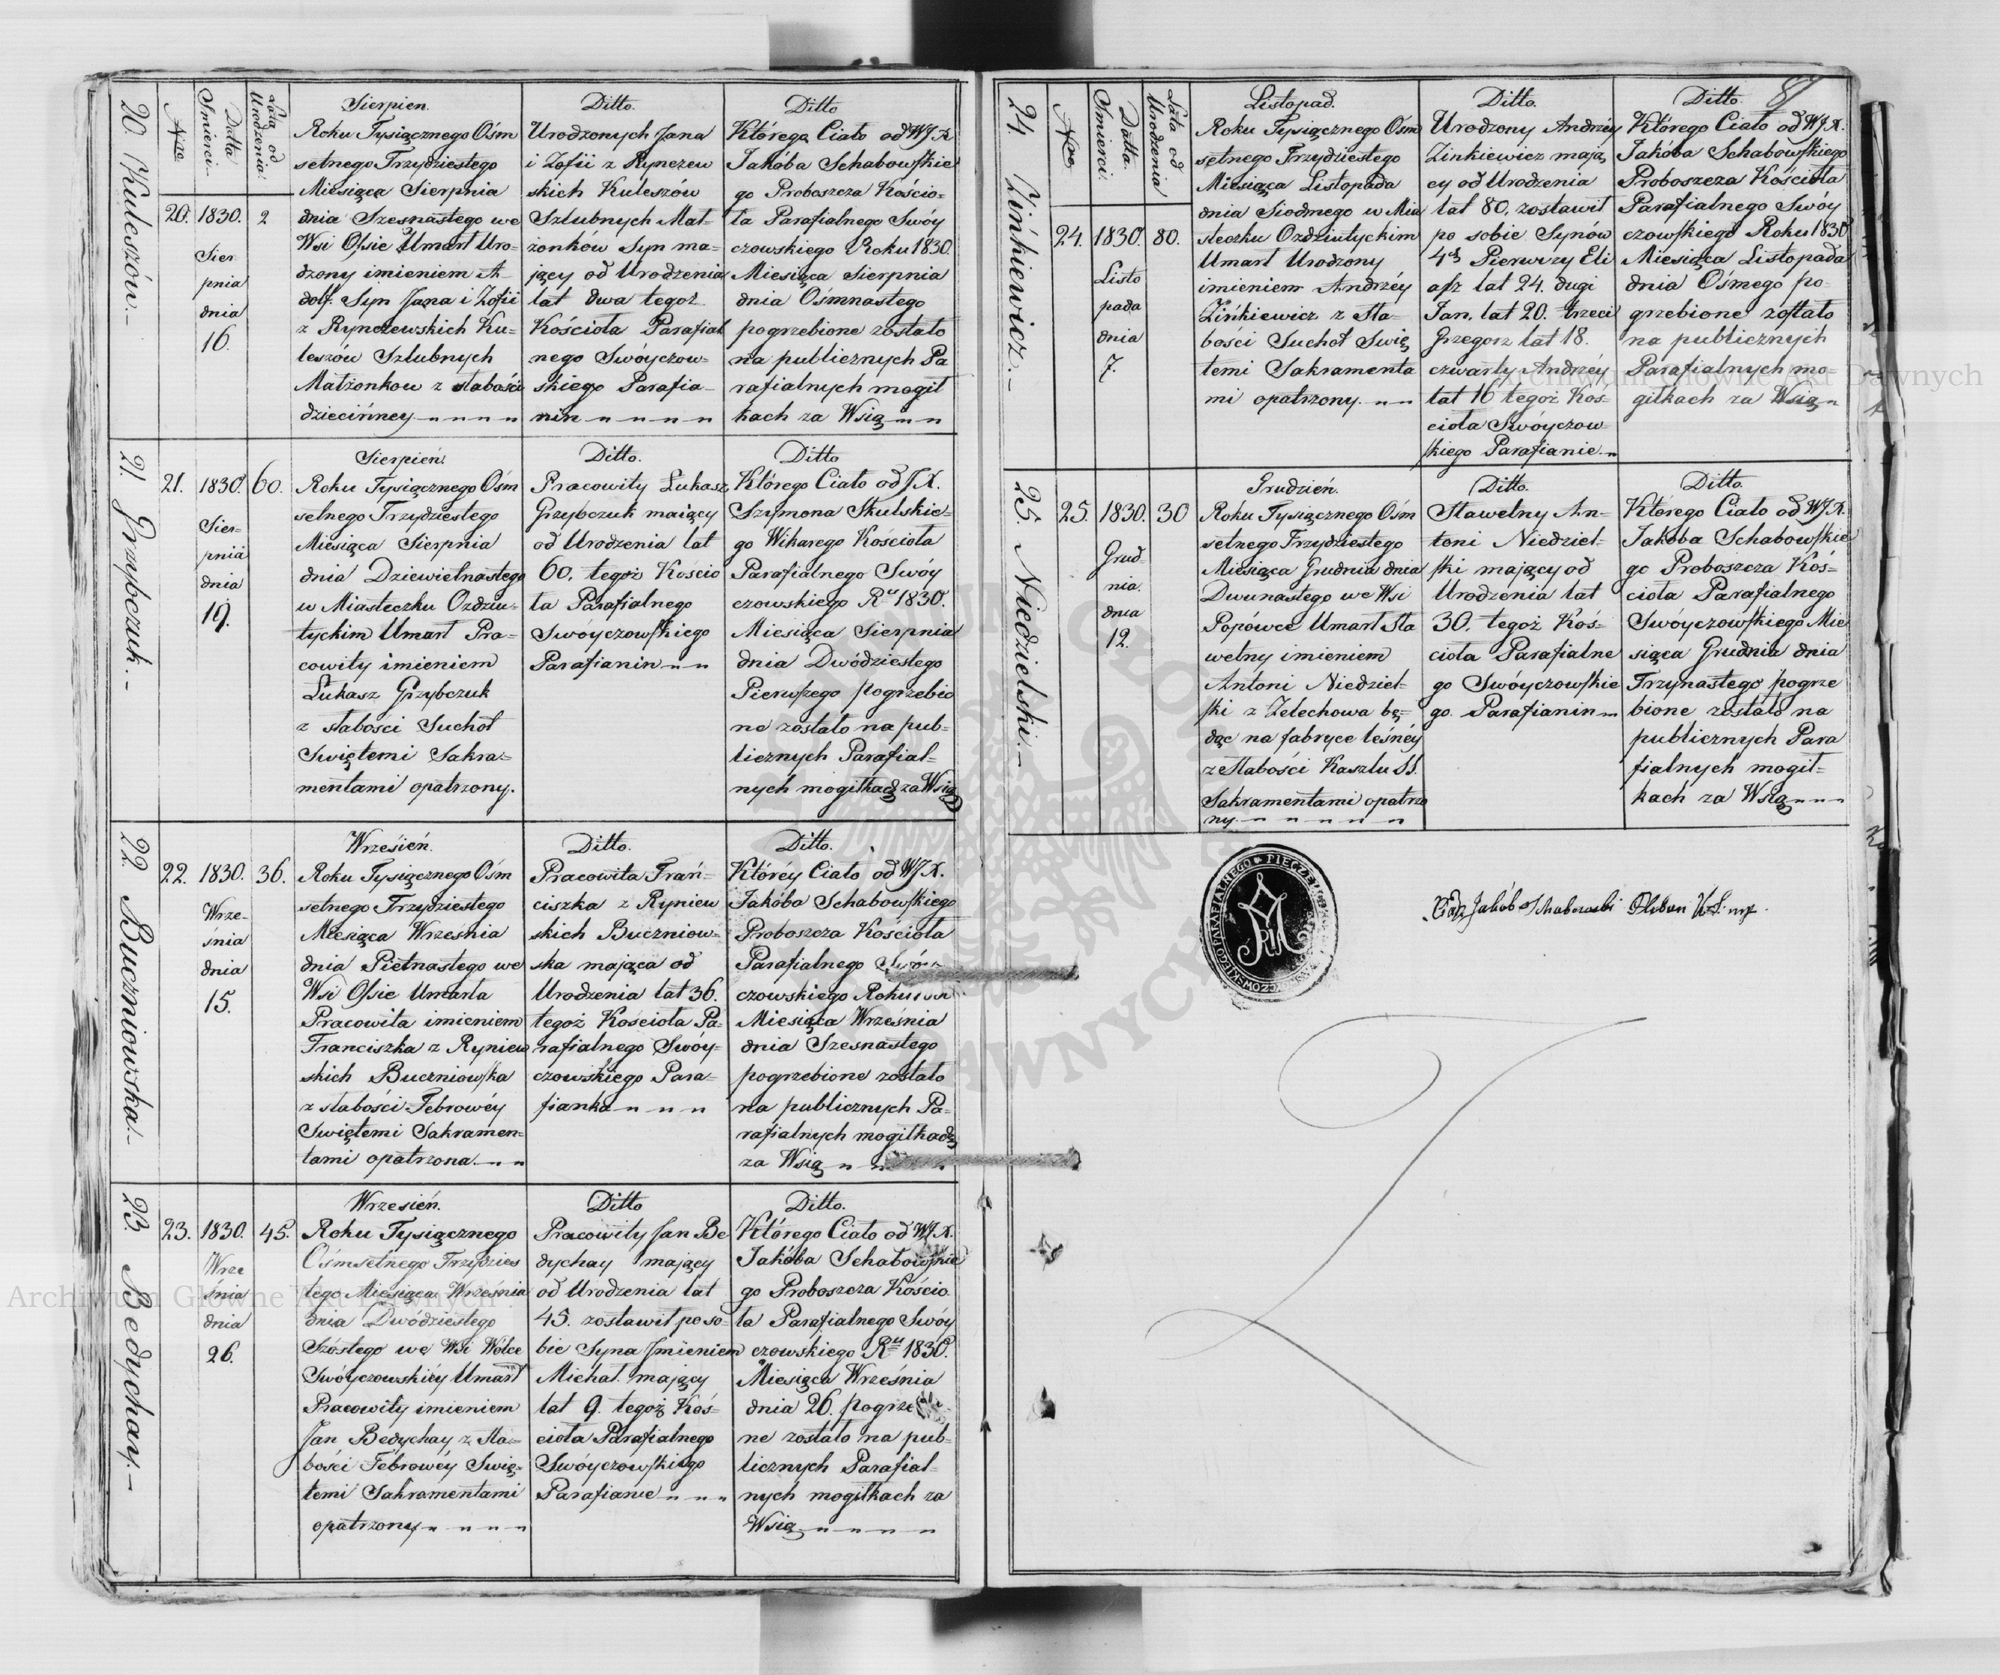 20 Kuleszów.–
Nro
Datta Smierci.
Lata od Urodzenia.
20.
1830.
Sier
pnia
dnia
16.
2
Sierpien.
Roku Tysiącznego Ośm
setnego Trzydziestego
Miesiąca Sierpnia
dnia Szesnastego we
Wsi Osie Umarł Uro-
dzony imieniem A-
dolf. Syn Jana i Zofii
z Rynczewskich Ku-
leszów Szlubnych
Małżonkow z słabości
dziecińney
Ditto.
Urodzonych Jana
i Zofii z Rynczew
skich Kuleszów
Szlubnych Mał-
żonków Syn ma-
jący od Urodzenia
lat dwa tegoż
Kościoła Parafial
nego Swóyczow-
skiego Parafia-
nin
Ditto
Którego Ciało od WJX
Jakóba Schabowskie
go Proboszcza Kościo-
ła Parafialnego Swóy
czowskiego Roku 1830.
Miesiąca Sierpnia
dnia Ośmnastego
pogrzebione zostało
na publicznych Pa
rafialnych mogił
kach za Wsią
21. Grzybczuk.–
21.
1830.
Sier-
pnia
dnia
19.
60.
Sierpień.
Roku Tysiącznego Ośm
setnego Trzydziestego
Miesiąca Sierpnia
dnia Dziewietnastego
w Miasteczku Ozdziu-
tyckim Umarł Pra-
cowity imieniem
Łukasz Grzybczuk
z słabości Suchot
Swiętemi Sakra-
mentami opatrzony.
Ditto.
Pracowity Łukasz
Grzybczuk maiący
od Urodzenia lat
60. tegoż Koscio
ła Parafialnego
Swóyczowskiego
Parafianin
Ditto
Którego Ciało od JX.
Szymona Skulskie-
go Wikarego Kosciola
Parafialnego Swóy
czowskiego Ru 1830.
Miesiąca Sierpnia
dnia Dwódziestego
Pierwszego pogrzebio
ne zostało na pub-
licznych Parafial-
nych mogiłkach za Wsią
22. Buczniowska.–
22.
1830.
Wrze-
śnia
dnia
15.
36.
Wrzesień.
Roku Tysiącznego Ośm
setnego Trzydziestego
Miesiąca Wrzesnia
dnia Pietnastego we
Wsi Osie Umarła
Pracowita imieniem
Franciszka z Ryniew
skich Buczniowska
z słabości Febrowéy
Swiętemi Sakramen-
tami opatrzona.
Ditto.
Pracowita Frań-
ciszka z Ryniew
skich Buczniow-
ska mająca od
Urodzenia lat 36.
tegoż Kościoła Pa-
rafialnego Swóy-
czowskiego Para-
fianka
Ditto.
Któréy Ciało od WJX.
Jakóba Schabowskiego
Proboszcza Kosciola
Parafialnego
czowskiego Roku
Miesiąca Września
dnia Szesnastego
pogrzebione zostało
na publicznych Pa-
rafialnych mogiłkach
za Wsią
23. Bedychay.–
23.
1830.
Wrze
śnia
dnia
26.
45.
Wrzesień.
Roku Tysiącznego
Ośmsetnego Trzydzies
tego Miesiąca Września
dnia Dwódziestego
Szóstego we Wsi Wólce
Swóyczowskiéy Umarł
Pracowity imieniem
Jan Bedychay z sła-
bości Febrowéy Swię-
temi Sakramentami
opatrzony
Ditto
Pracowity Jan Be
dychay mający
od Urodzenia lat
45. zostawił po so-
bie Syna Imieniem
Michał. mający
lat 9. tegoż Koś-
ciola Parafialnego
Swóyczowskiego
Parafianie
Ditto.
Którego Ciało od WJX.
Jakóba Schabowskie
go Proboszcza Kościo
ła Parafialnego Swóy
czowskiego Ru 1830.
Miesiąca Września
dnia 26. pogrze
ne zostało na pub-
licznych Parafial-
nych mogiłkach za
Wsią
87
24 Zińkiewicz.–
Nro
Datta Smierci.
Lata od Urodzenia
24.
1830.
Listo
pada
dnia
7.
80.
Listopad.
Roku Tysiącznego Ośm
setnego Trzydziestego
Miesiąca Listopada
dnia Siodmego w Mia
steczku Ozdziutyckim
Umarł Urodzony
imieniem Andrzéy
Zińkiewicz z sła-
bości Suchot Swię
temi Sakramenta
mi opatrzony.
Ditto.
Urodzony Andrzéy
Zinkiewicz mają
cy od Urodzenia
lat 80. zostawił
po sobie Synów
4ch Pierwszy Eli
asz lat 24. dugi
Jan. lat 20. trzeci
Grzegorz lat 18.
czwarty Andréy
lat 16 tegoż Koś-
cioła Swóyczow
skiego Parafianie.
Ditto.
Którego Ciało od WJX.
Jakóba Schabowskiego
Proboszcza Kościoła
Parafialnego Swóy
czowskiego Roku 1830
Miesiąca Listopada
dnia Ośmego po-
grzebione zostało
na publicznych
Parafialnych mo-
giłkach za Wsią
25. Niedzielski.–
25.
1830.
Grud
nia.
dnia
12.
30
Grudzień.
Roku Tysiącznego Ośm
setnego Trzydziestego
Miesiąca Grudnia dnia
Dwunastego we Wsi
Popówce Umarł Sła
wetny imieniem
Antoni Niedziel-
ski z Zelechowa bę-
dąc na fabryce leśnéy
z słabości Kaszlu SS.
Sakramentami opatrzo
ny.
Ditto.
Sławetny An-
toni Niedziel-
ski mający od
Urodzenia lat
30. tegoż Koś-
cioła Parafialne
go Swóyczowskie
go Parafianin
Ditto.
Którego Ciało od WJX.
Jakóba Schabowskie
go Proboszcza Koś-
cioła Parafialnego
Swóyczowskiego Mie
siąca Grudnia dnia
Trzynastego pogrze
bione zostało na
publicznych Para
fialnych mogił-
kach za Wsią
Xiądz Jakób Schabowski Pleban K.S. mp.
Archiwum Główne Akt Dawnych
Archiwum Główne Akt Dawnych